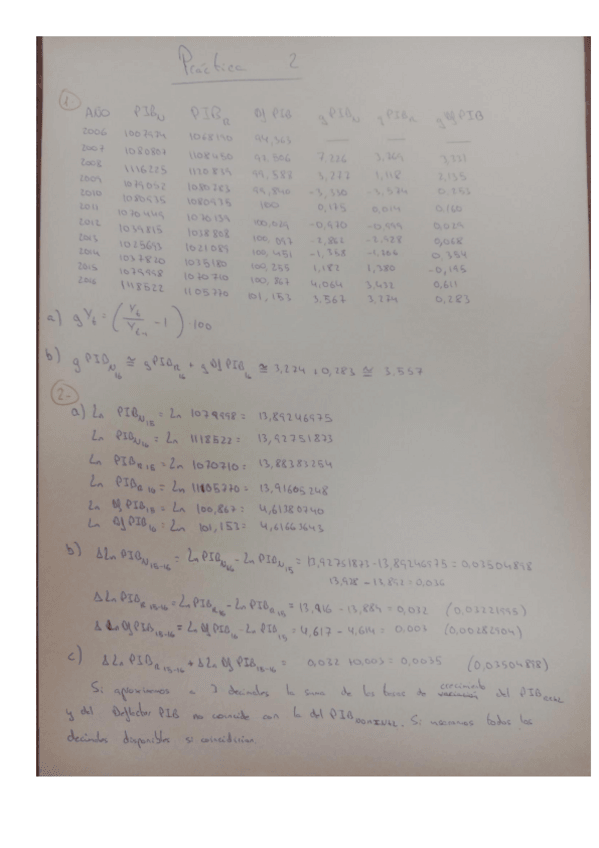 Práctica 2
1) AÑO PIB_N PIB_R Df PIB gPIB_N gPIB_R gDf PIB
2006 1007974 1068190 94,363 — — —
2007 1080807 1108450 3,769
2008 1116225 99,588 3,277
2009 1079052 1080763 99,840
2010 1080935 1080935 100 0,175 0,014 0,160
2011 1070449 1070139 100,029 0,029
2012 1039815 1038808 100,097 0,068
2013 1025693 1021089 100,451 0,354
2014 1037820 1035180 100,255 1,182 1,380 -0,195
2015 1079998 1070710 100,867 4,064 3,432 0,611
2016 1118522 1105770 101,153 3,567 3,274 0,283
a) gY_t = (Y_t / Y_t-1 - 1) · 100
b) gPIB_N 16 ≅ gPIB_R 16 + gDf PIB 16 ≅ 3,274 + 0,283 ≅ 3.557
2-
a) Ln PIB_N 15 = Ln 1079998 = 13,89246975
Ln PIB_N 16 = Ln 1118522 = 13,92751873
Ln PIB_R 15 = Ln 1070710 = 13,88383254
Ln PIB_R 16 = Ln 1105770 = 13,91605248
Ln Df PIB 15 = Ln 100,867 = 4,61380740
Ln Df PIB 16 = Ln 101,153 = 4,61663643
b) ΔLn PIB_N 15-16 = Ln PIB_N 16 - Ln PIB_N 15 = 13,92751873 - 13,89246975 = 0,03504898
13,928 - 13,892 = 0,036
ΔLn PIB_R 15-16 = Ln PIB_R 16 - Ln PIB_R 15 = 13,916 - 13,884 = 0,032 (0,03221995)
ΔLn Df PIB 15-16 = Ln Df PIB 16 - Ln PIB 15 = 4,617 - 4,614 = 0,003 (0,00282904)
c) ΔLn PIB_R 15-16 + ΔLn Df PIB 15-16 = 0,032 + 0,003 = 0,0035 (0,03504898)
Si aproximamos a 3 decimales la suma de las tasas de crecimiento del PIB REAL
y del Deflactor PIB no coincide con la del PIB NOMINAL. Si usaramos todos los
decimales disponibles si coincidirian